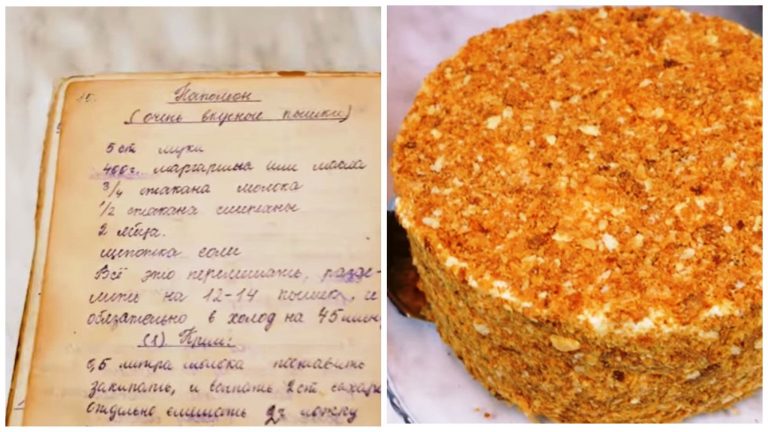 15.
Наполеон
(очень вкусные пышки)
5 ст муки
400 г. маргарина или масла
3/4 стакана молока
1/2 стакана сметаны
2 яйца.
щепотка соли
Всё это перемешать, разде-
лить на 12-14 пышек, и
обязательно в холод на 45 мин
(1) Крем:
0,5 литра молока поставить
закипать, и всыпать 2 ст. сахара
отдельно смешать 2х ложку